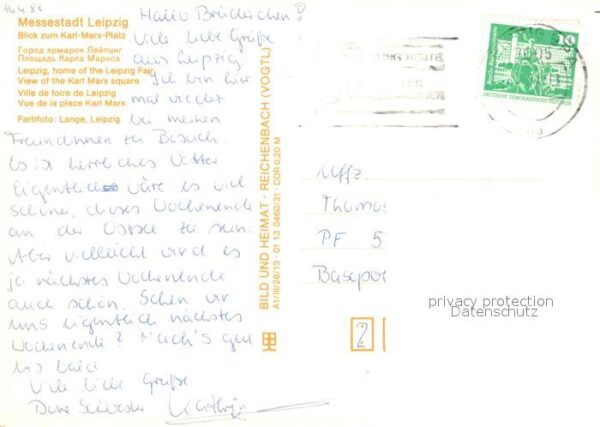 Messestadt Leipzig
Blick zum Karl-Marx-Platz
Город ярмарок Лейпциг
Площадь Карла Маркса
Leipzig, home of the Leipzig Fair
View of the Karl Marx square
Ville de foire de Leipzig
Vue de la place Karl Marx
Farbfoto: Lange, Leipzig
Hallo Brüderchen!
Viele liebe Grüße
aus Leipzig.
Ich bin hier
mal wieder
bei meinen
Freundinnen zu Besuch.
Es ist herrliches Wetter
Eigentlich wäre es viel
schöner, dieses Wochenende
an der Ostsee zu sein.
Aber vielleicht wird es
ja nächstes Wochenende
auch schön. Sehen wir
uns eigentlich nächstes
Wochenende? Mach's gut
bis bald
Viele liebe Grüße
Deine Schwester
BILD UND HEIMAT · REICHENBACH (VOGTL)
A1/III/26/13 · 01 13 0460/31 · DDR 0,20 M
10
DEUTSCHE DEMOKRATISCHE REPUBLIK
Uffz.
Thomas
PF 5
Basepo
privacy protection
Datenschutz
2